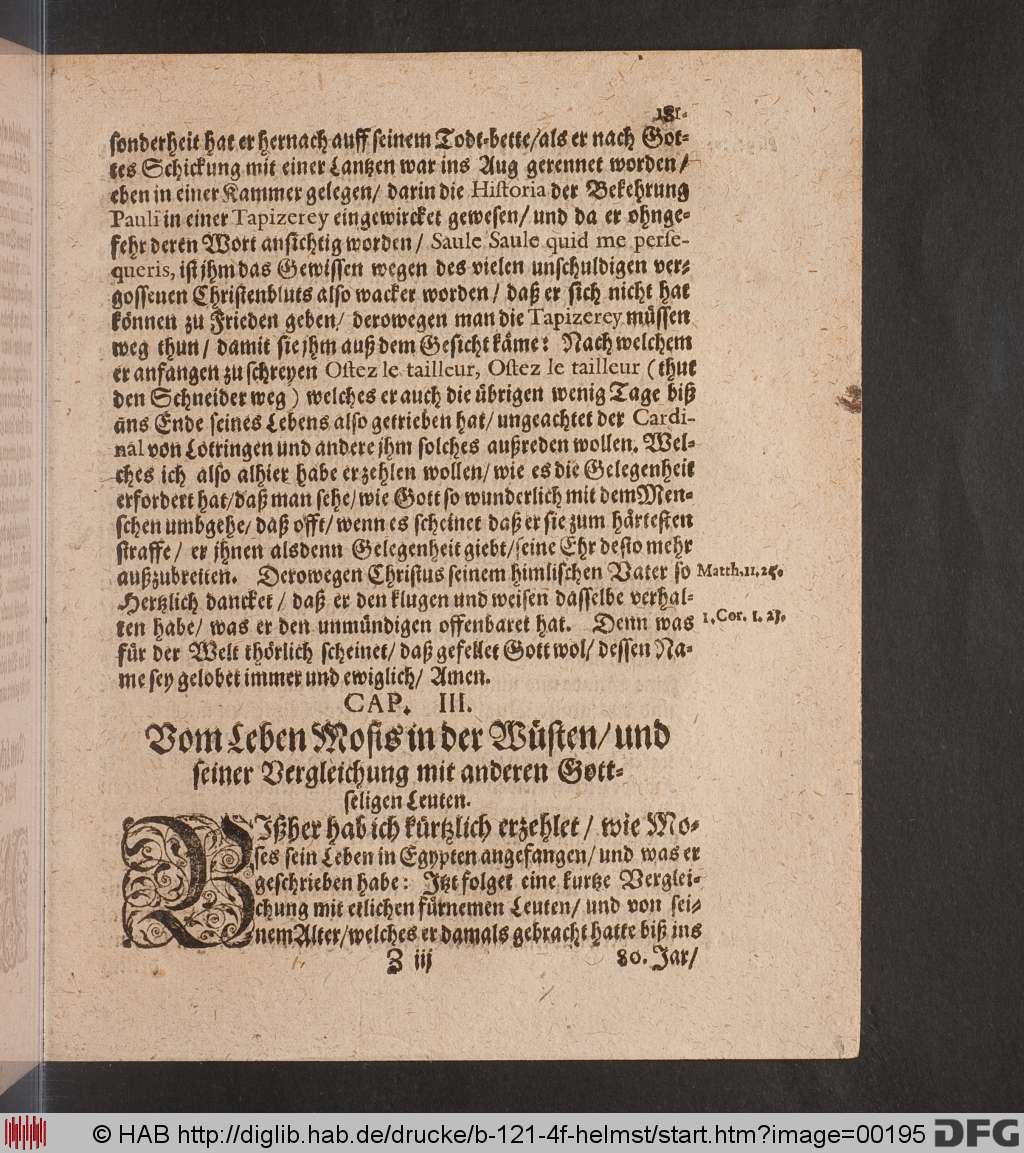 181.
sonderheit hat er hernach auff seinem Todt-bette/als er nach Got-
tes Schickung mit einer Lantzen war ins Aug gerennet worden/
eben in einer Kammer gelegen/ darin die Historia der Bekehrung
Pauli in einer Tapizerey eingewircket gewesen/ und da er ohnge-
fehr deren Wort ansichtig worden/ Saule Saule quid me perse-
queris, ist jhm das Gewissen wegen des vielen unschuldigen ver-
gossenen Christenbluts also wacker worden/ daß er sich nicht hat
können zu Frieden geben/ derowegen man die Tapizerey müssen
weg thun/ damit sie jhm auß dem Gesicht käme: Nach welchem
er anfangen zu schreyen Ostez le tailleur, Ostez le tailleur (thut
den Schneider weg) welches er auch die übrigen wenig Tage biß
ans Ende seines Lebens also getrieben hat/ ungeachtet der Cardi-
nal von Lotringen und andere jhm solches außreden wollen. Wel-
ches ich also alhier habe erzehlen wollen/ wie es die Gelegenheit
erfordert hat/daß man sehe/wie Gott so wunderlich mit dem Men-
schen umbgehe/ daß offt/wenn es scheinet daß er sie zum härtesten
straffe/ er jhnen alsdenn Gelegenheit giebt/seine Ehr desto mehr
außzubreiten. Derowegen Christus seinem himlischen Vater so Matth.11,25.
Hertzlich dancket/ daß er den klugen und weisen dasselbe verhal-
ten habe/ was er den unmündigen offenbaret hat. Denn was 1. Cor. 1. 23.
für der Welt thörlich scheinet/ daß gefellet Gott wol/ dessen Na-
me sey gelobet immer und ewiglich/ Amen.
CAP. III.
Vom Leben Mosis in der Wüsten/ und
seiner Vergleichung mit anderen Gott-
seligen Leuten.
BIßher hab ich kürtzlich erzehlet/ wie Mo-
ses sein Leben in Egypten angefangen/ und was er
geschrieben habe: Itzt folget eine kurtze Verglei-
chung mit etlichen fürnemen Leuten/ und von sei-
nem Alter/welches er damals gebracht hatte biß ins
Z iij 80. Jar/
© HAB http://diglib.hab.de/drucke/b-121-4f-helmst/start.htm?image=00195 DFG